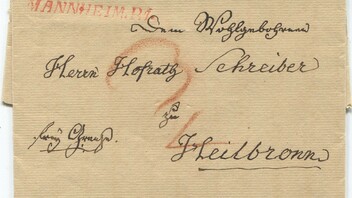 MANNHEIM. R.1.
Dem Wohlgebohrnen
Herrn Hofrath Schreiber
zu
frey Grenze.
Heilbronn